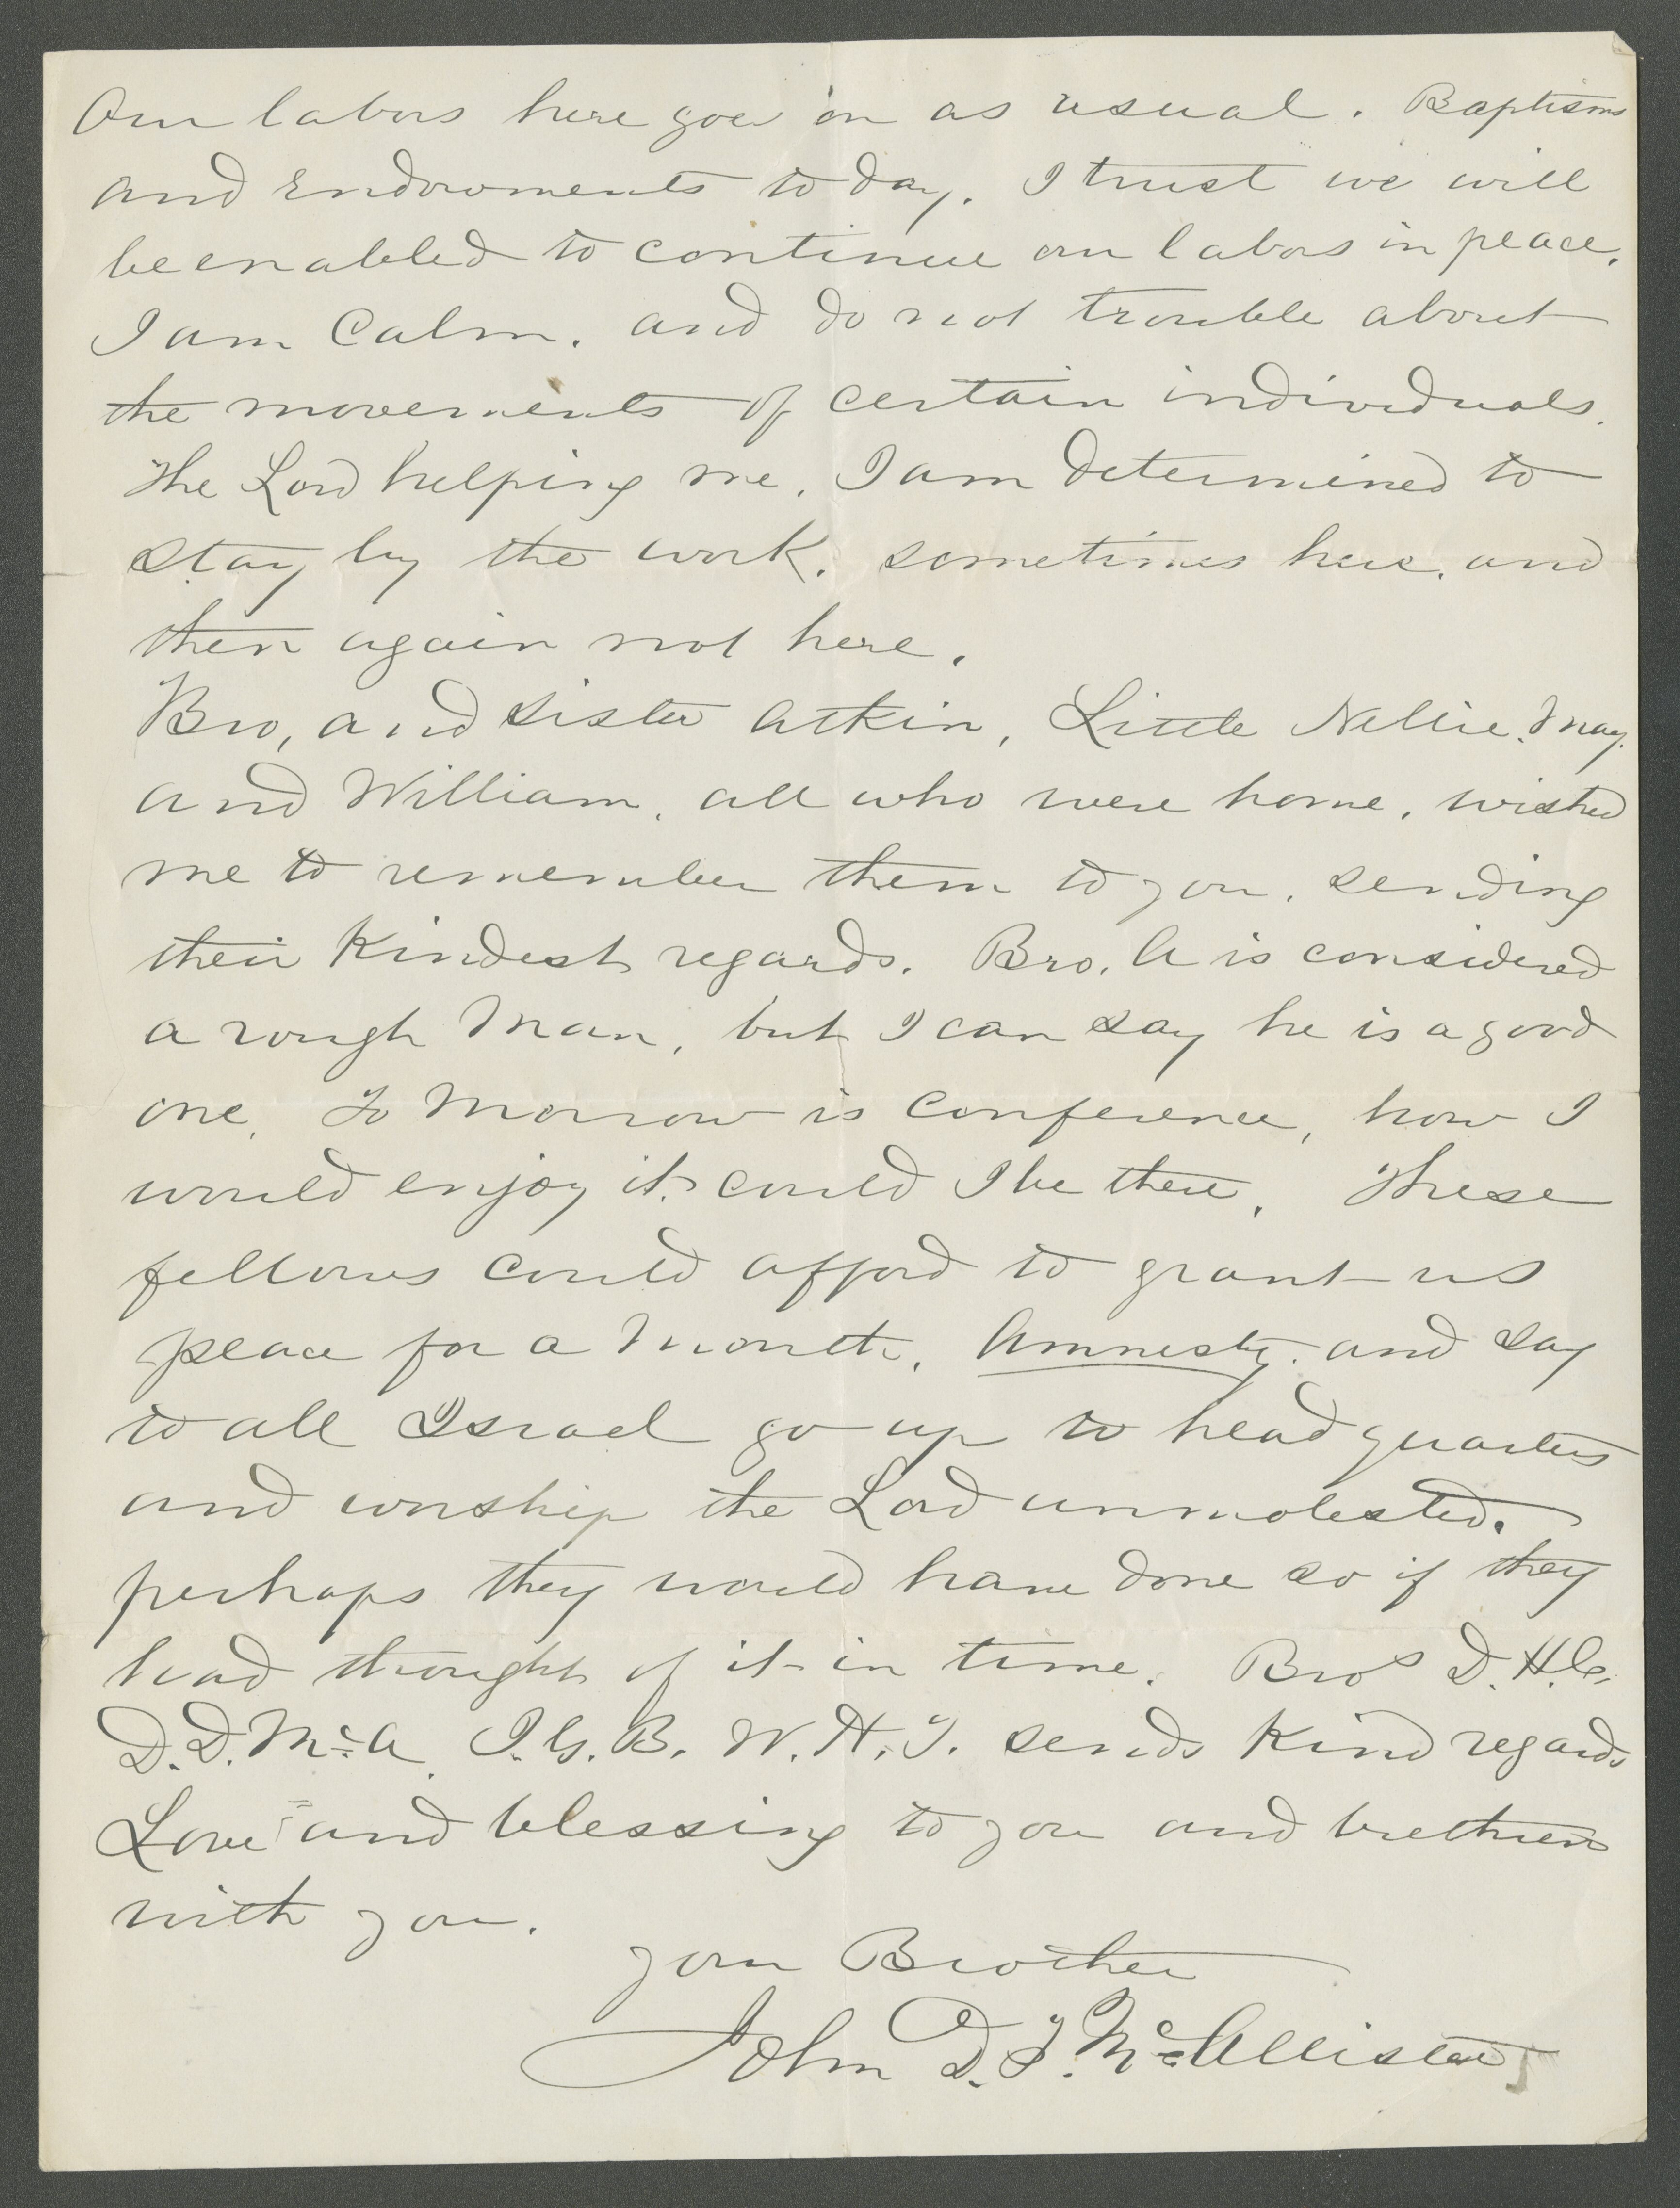 Our labors here goes on as usual. Baptisms
and Endowments to day. I trust we will
be enabled to continue our labors in peace.
I am Calm. and do not trouble about
the movements of certain individuals.
The Lord helping me, I am determined to
stay by the work. sometimes here, and
then again not here.
Bro, and Sister Atkin, Little Nellie. May.
and William, all who were home, wished
me to remember them to you, sending
their Kindest regards. Bro. A is considered
a rough Man, but I can say he is a good
one. To Morrow is Conference, how I
would enjoy it could I be there. These
fellows could afford to grant us
peace for a Month. Amnesty. and say
to all Israel go up to head quarters
and worship the Lord unmolested.
perhaps they would have done so if they
had thought of it in time. Bros D. H. C.
D. D. McA. I. G. B. W. H. T. sends Kind regards
Love and blessing to you and brethren
with you.
your Brother
John D. T. McAllister